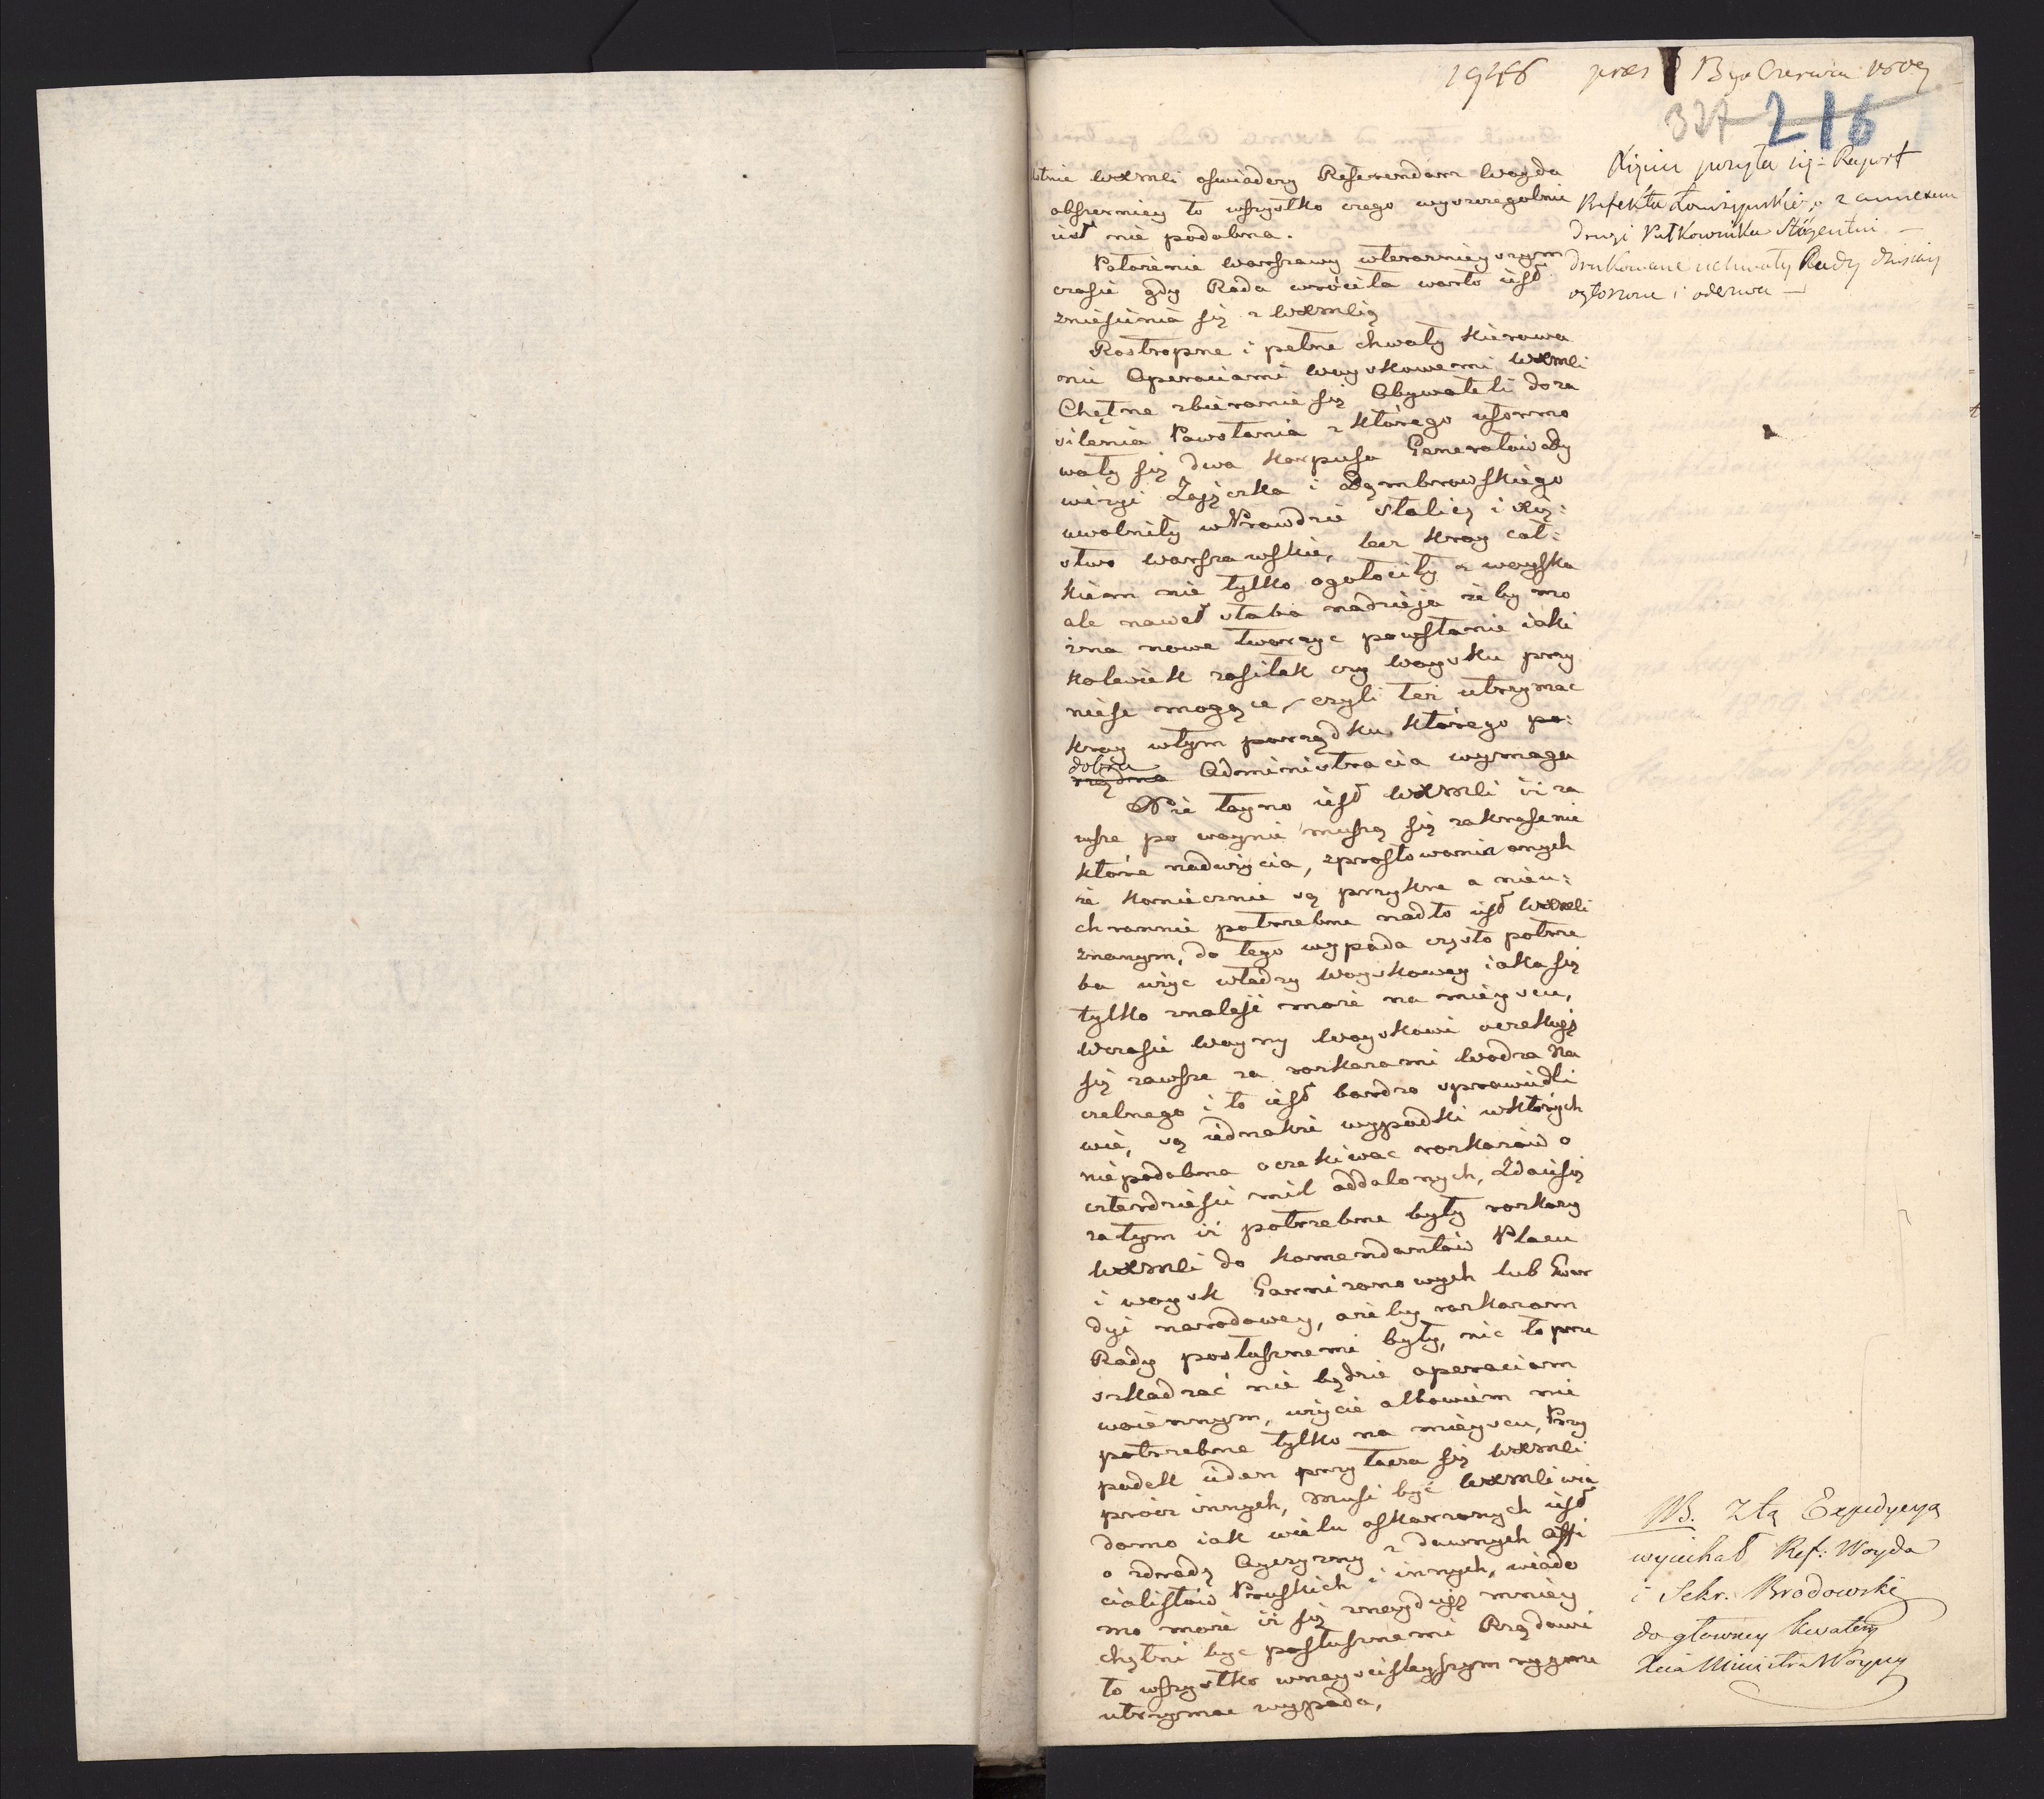 1946 pres 13go Czerwca 1809
327 216
Xięciu posyła się: Raport
Prefekta Łomżyńskiego z annexem
drugi Pułkownika
drukowane uchwały Rady dzisiay
ogłoszone i odezwa —
WXMci oświadczy Referendarz Woyda
obszerniey to wszystko czego wyszczegolnić
iest nie podobna.
Położenie Warszawy wteraznieyszym
czasie gdy Rada wróciła warto iest
zniesienia się z WXMcią
Roztropne i pełne chwały kierowa
nie Operaciami woyskowemi WXMci
Chętne zbieranie się Obywateli do za
silenia Powstania z którego uformo
wały się dwa korpusa Generałów Dy
wizyi Zajączka i Dąmbrowskiego
uwolniły wPrawdzie stolicę i Xię:
stwo warszawskie, lecz kray cał:
kiem nie tylko ogołociły z woyska
ale nawet słaba nadzieja żeby mo
żna nowe tworzyc powstanie iaki
kolwiek zasiłek czy woysku przy
nieść mogące, czyli też utrzymac
kray wtym porządku którego po:
dobra
rządna Administracia wymaga
Nie tayno iest WXMci iż za
wsze po woynie muszą się zakraść nie
które nadużycia, sprostowania onych
że koniecznie są przykre a nieu:
chronnie potrzebne nadto iest WXMci
znanym, do tego wypada częsta potrze
ba użyc władzy woyskowey iaka się
tylko znaleść może na mieyscu,
wczasie woyny woyskowi oczekuią
się zawsze za rozkazami wodza Na
czelnego i to iest bardzo sprawiedli
wie, są iednakże wypadki wktórych
niepodobna oczekiwac rozkazów o
czterdzieści mil oddalonych, Zdaie się
zatym iż potrzebne były rozkazy
WXMci do komendantów Placu
i woysk Garnizonowych lub Gwar
dyi narodowey, ażeby rozkazom
Rady posłusznemi były, nic to prze
szkadzać nie będzie operaciom
woiennym, użycie albowiem nie
potrzebne tylko na mieyscu, Przy
padek ieden przytacza się WXMci
prócz innych, musi być WXMci wia
domo iak wielu oskarzonych iest
o zdradę Oyczyzny z dawnych offi
cialistów Pruskich i innych, wiado
mo może iż się znayduią mniey
chętni byc posłusznemi Rządowi
to wszystko wnayscisleyszym rygorze
utrzymac wypada,
NB. Z tą Expedycyą
wyiechał Ref: Woyda
i Sekr. Brodowski
do głowney kwatery
Xcia Ministra Woyny